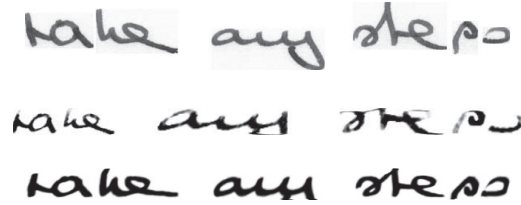 take any steps
take any steps
take any steps